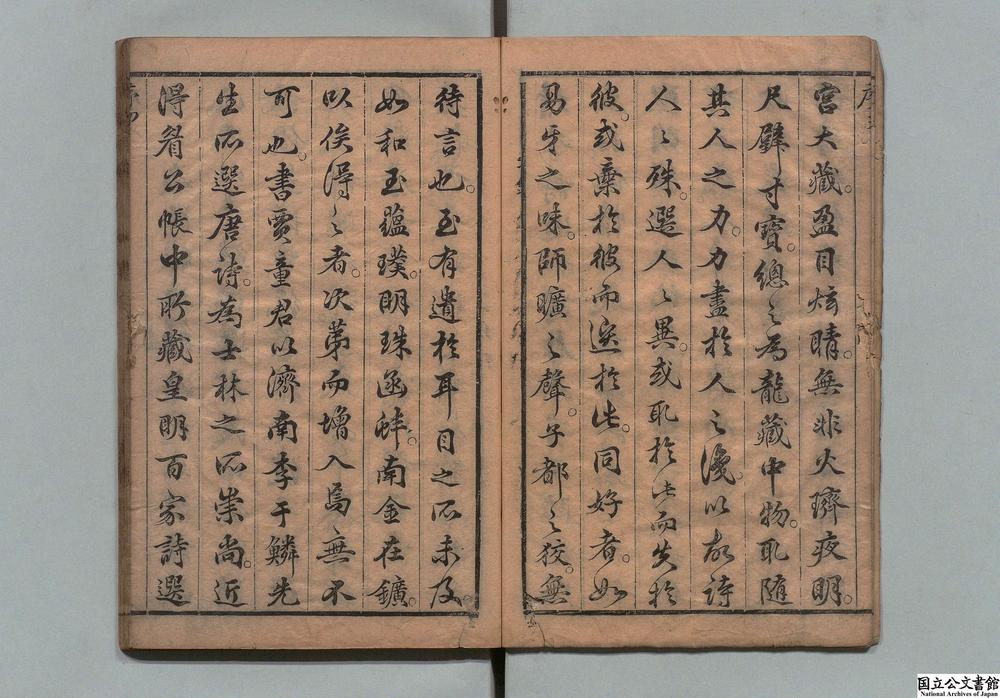 宮大藏。盈目炫睛。無非火齊夜明。
尺璧寸寶。總之為龍藏中物。取隨
其人之力。力盡於人之後。以故詩
人人殊。選人人異。或取於此而失於
彼。或棄於彼而選於此。同好者。如
易牙之味。師曠之聲。子都之狡。無
待言也。至有遺於耳目之所未及。
如和玉蘊璞。明珠函蚌。南金在鑛。
以俟得之者。次第而增入焉。無不
可也。書賈童君以濟南李于鱗先
生所選唐詩。為士林之所崇尚。近
得眷公帳中所藏皇明百家詩選
国立公文書館
National Archives of Japan